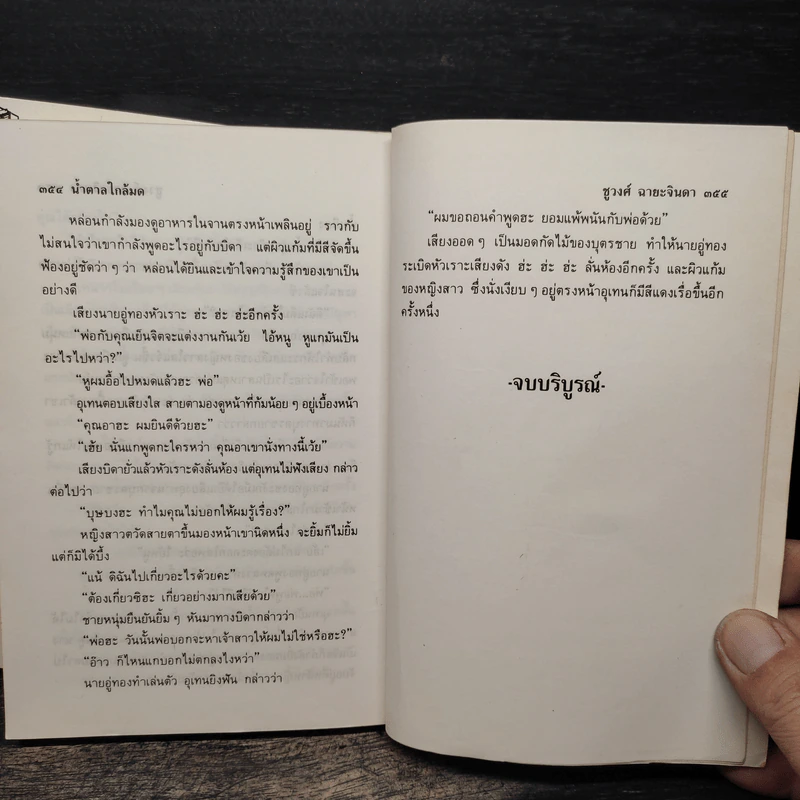 ๓๕๔ น้ำตาลใกล้มด
หล่อนกำลังมองดูอาหารในจานตรงหน้าเพลินอยู่ ราวกับ
ไม่สนใจว่าเขากำลังพูดอะไรอยู่กับบิดา แต่ผิวแก้มที่มีสีจัดขึ้น
ฟ้องอยู่ชัดว่า ๆ ว่า หล่อนได้ยินและเข้าใจความรู้สึกของเขาเป็น
อย่างดี
เสียงนายอู่ทองหัวเราะ ฮ่ะ ฮ่ะ ฮ่ะอีกครั้ง
“พ่อกับคุณเย็นจิตจะแต่งงานกันเว้ย ไอ้หนู หูแกมันเป็น
อะไรไปหว่า?”
“หูผมอื้อไปหมดแล้วฮะ พ่อ”
อุเทนตอบเสียงใส สายตามองดูหน้าที่ก้มน้อย ๆ อยู่เบื้องหน้า
“คุณอาฮะ ผมยินดีด้วยฮะ”
“เฮ้ย นั่นแกพูดกะใครหว่า คุณอาเขานั่งทางนี้เว้ย”
เสียงบิดายั่วแล้วหัวเราะดังลั่นห้อง แต่อุเทนไม่ฟังเสียง กล่าว
ต่อไปว่า
“บุษบงฮะ ทำไมคุณไม่บอกให้ผมรู้เรื่อง?”
หญิงสาวตวัดสายตาขึ้นมองหน้าเขานิดหนึ่ง จะยิ้มก็ไม่ยิ้ม
แต่ก็มิได้บึ้ง
“แน้ ดิฉันไปเกี่ยวอะไรด้วยคะ”
“ต้องเกี่ยวซิฮะ เกี่ยวอย่างมากเสียด้วย”
ชายหนุ่มยืนยันยิ้ม ๆ หันมาทางบิดากล่าวว่า
“พ่อฮะ วันนั้นพ่อบอกจะหาเจ้าสาวให้ผมไม่ใช่หรือฮะ?”
“อ๊าว ก็ไหนแกบอกไม่ตกลงไงหว่า”
นายอู่ทองทำเล่นตัว อุเทนยิงฟัน กล่าวว่า
ชูวงศ์ ฉายะจินดา ๓๕๕
“ผมขอถอนคำพูดฮะ ยอมแพ้พนันกับพ่อด้วย”
เสียงออด ๆ เป็นมอดกัดไม้ของบุตรชาย ทำให้นายอู่ทอง
ระเบิดหัวเราะเสียงดัง ฮ่ะ ฮ่ะ ฮ่ะ ลั่นห้องอีกครั้ง และผิวแก้ม
ของหญิงสาว ซึ่งนั่งเงียบ ๆ อยู่ตรงหน้าอุเทนก็มีสีแดงเรื่อขึ้นอีก
ครั้งหนึ่ง
-จบบริบูรณ์-